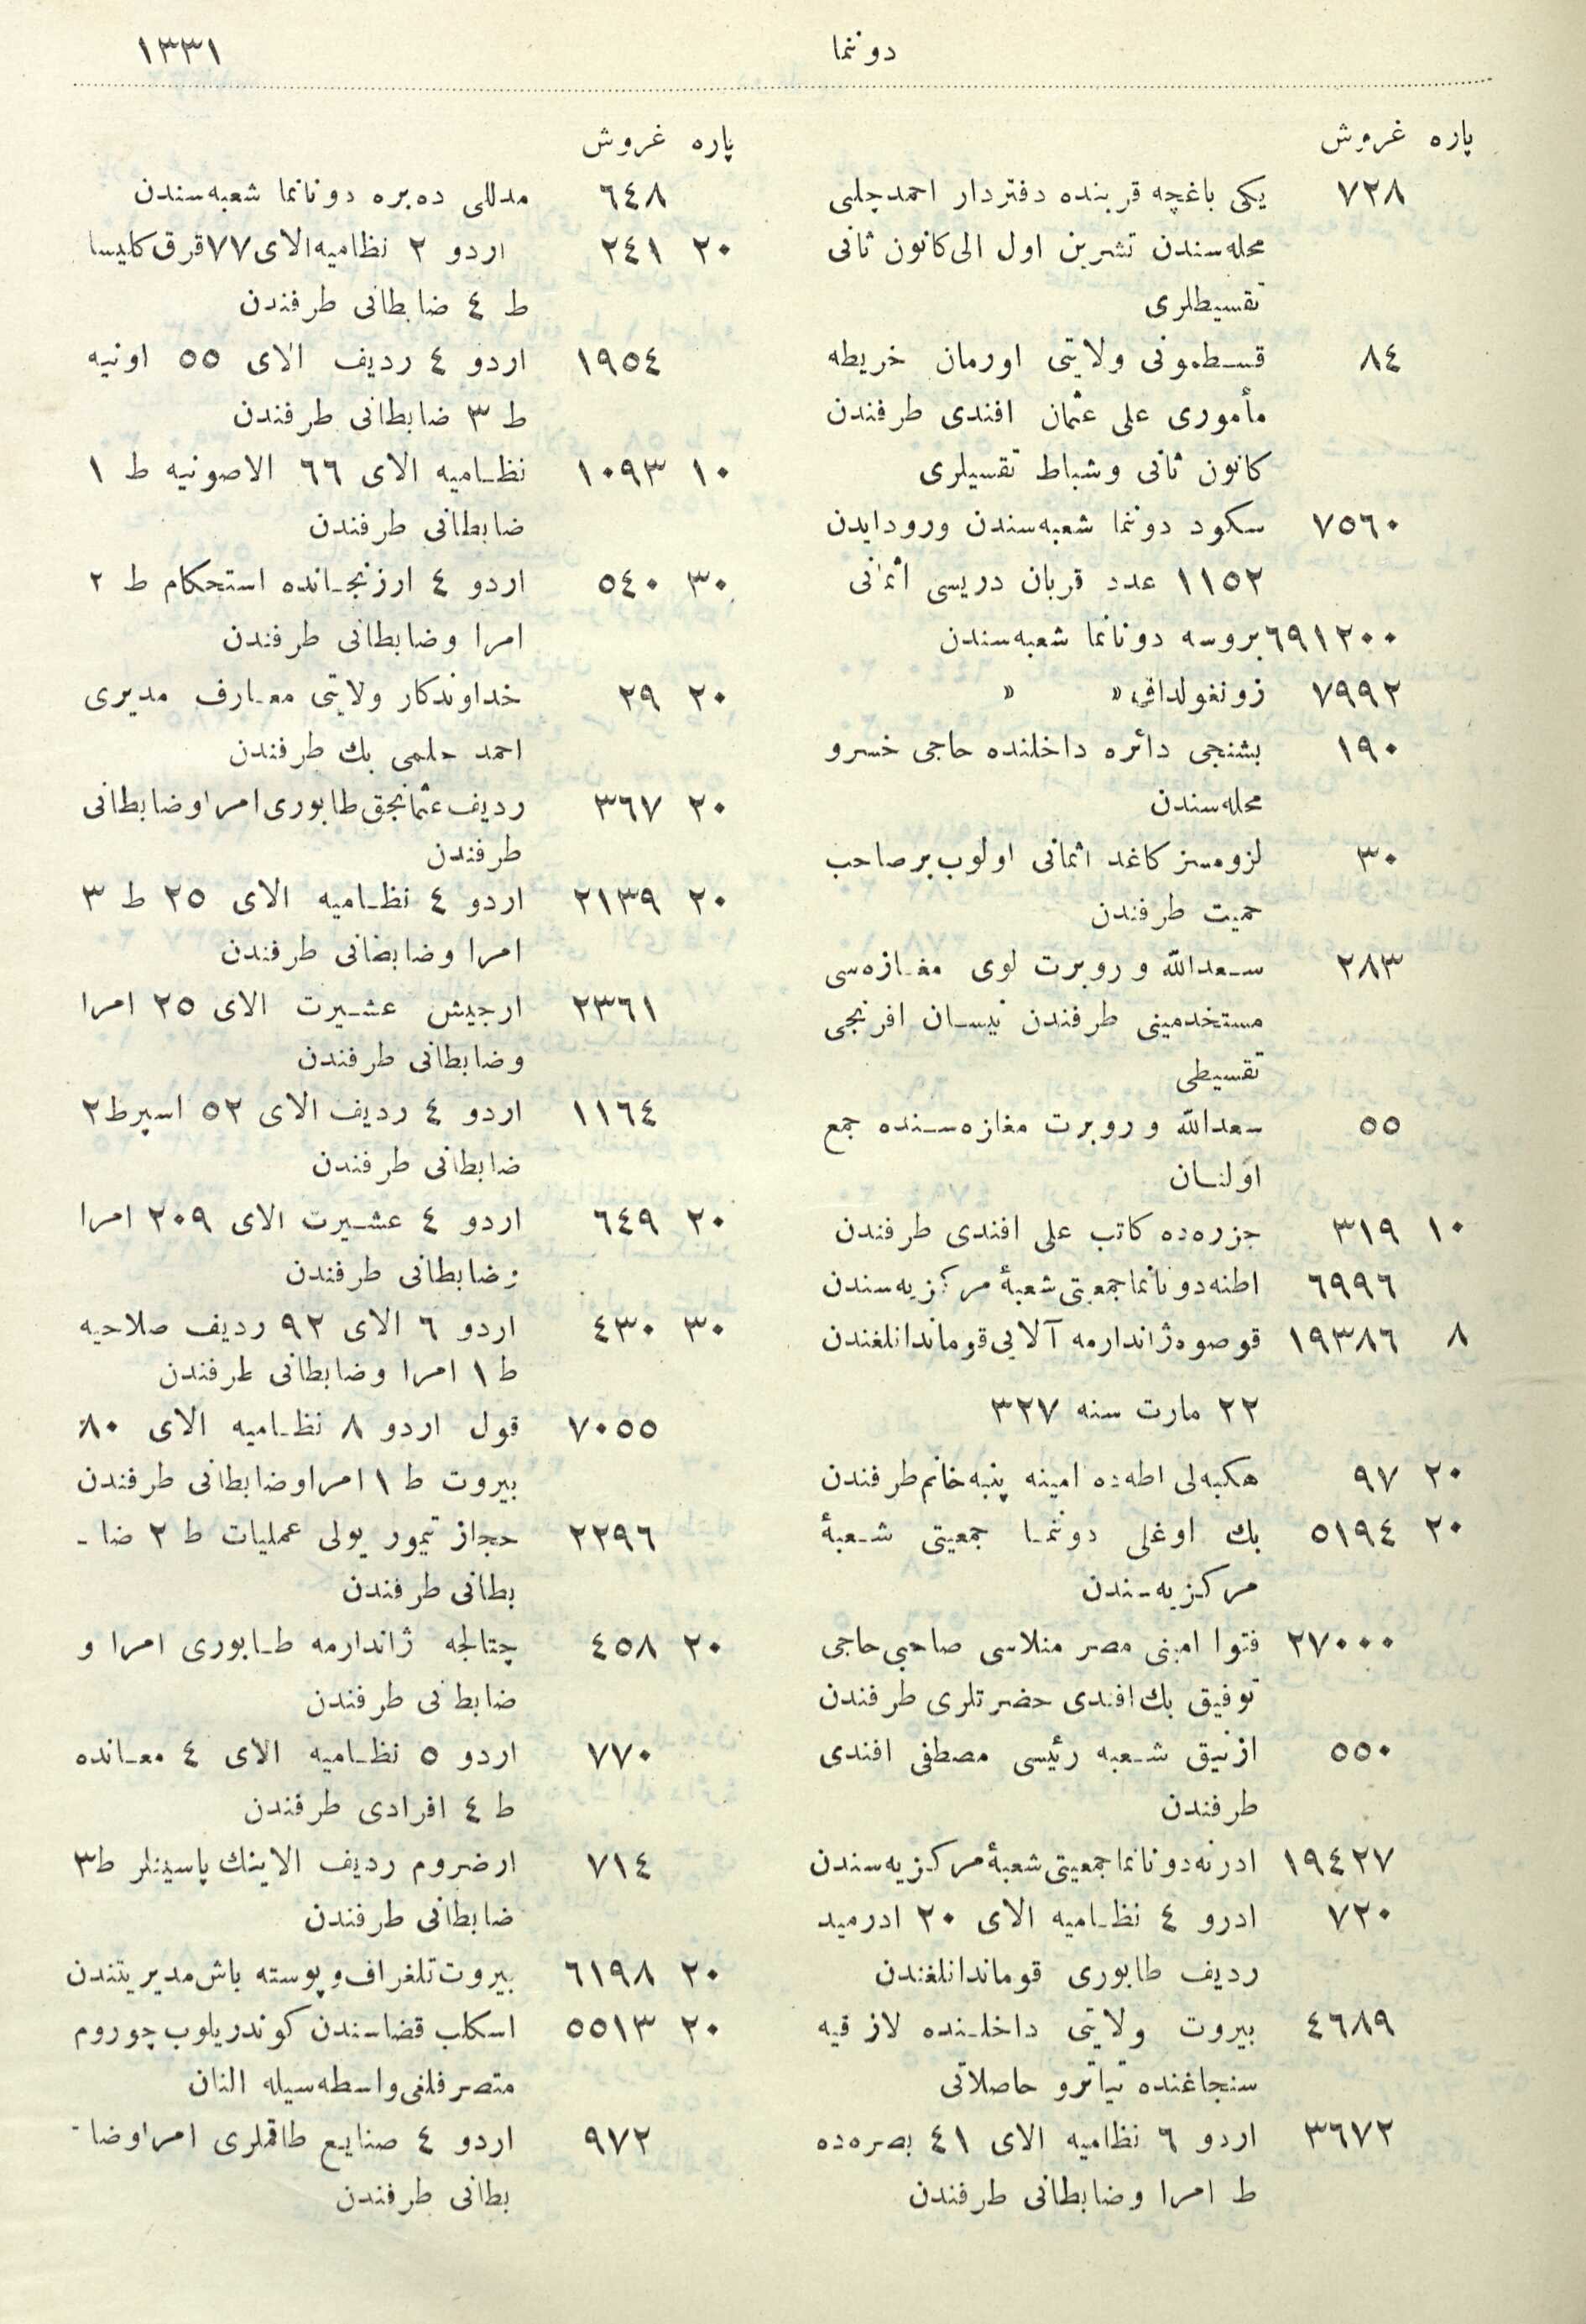 دوننما
١٣٣١
پاره غروش
٧٢٨ یکی باغچه قربنده دفتردار احمد چلبی
محله‌سندن تشرین اول الی کانون ثانی
تقسیطلری
٨٤ قسطمونی ولایتی اورمان خریطه
مأموری علی عثمان افندی طرفندن
کانون ثانی و شباط تقسیلری
٧٥٦٠ سکود دوننما شعبه‌سندن ورود ایدن
١١٥٢ عدد قربان دریسی اثمانی
٦٩١٢٠٠ بروسه دونانما شعبه‌سندن
٧٩٩٢ زونغولداق » »
١٩٠ بشنجی دائره داخلنده حاجی خسرو
محله‌سندن
٣٠ لزومسز کاغد اثمانی اولوب بر صاحب
حمیت طرفندن
٢٨٣ سعدالله و روبرت لوی مغازه‌سی
مستخدمینی طرفندن نیسان افرنجی
تقسیطی
٥٥ سعدالله و روبرت مغازه‌سنده جمع
اولنان
١٠ ٣١٩ جزره‌ده کاتب علی افندی طرفندن
٦٩٩٦ اطنه دونانما جمعیتی شعبهٔ مرکزیه‌سندن
٨ ١٩٣٨٦ قوصوه ژاندارمه آلایی قوماندانلغندن
٢٢ مارت سنه ٣٢٧
٢٠ ٩٧ هکبه‌لی اطه‌ده امینه پنبه خانم طرفندن
٢٠ ٥١٩٤ بك اوغلی دوننما جمعیتی شعبهٔ
مرکزیه‌سندن
٢٧٠٠٠ فتوا امینی مصر منلاسی صاحبی حاجی
توفیق بك افندی حضرتلری طرفندن
٥٥٠ ازنیق شعبه رئیسی مصطفی افندی
طرفندن
١٩٤٢٧ ادرنه دونانما جمعیتی شعبهٔ مرکزیه‌سندن
٧٢٠ ادرو ٤ نظامیه الای ٢٠ ادرمید
ردیف طابوری قوماندانلغندن
٤٦٨٩ بیروت ولایتی داخلنده لازقیه
سنجاغنده تیاترو حاصلاتی
٣٦٧٢ اردو ٦ نظامیه الای ٤١ بصره‌ده
ط امرا و ضابطانی طرفندن
پاره غروش
٦٤٨ مدللی ده‌بره دونانما شعبه‌سندن
٢٠ ٢٤١ اردو ٢ نظامیه الای ٧٧ قرق کلیسا
ط ٤ ضابطانی طرفندن
١٩٥٤ اردو ٤ ردیف الای ٥٥ اونیه
ط ٣ ضابطانی طرفندن
١٠ ١٠٩٣ نظامیه الای ٦٦ الاصونیه ط ١
ضابطانی طرفندن
٣٠ ٥٤٠ اردو ٤ ارزنجانده استحکام ط ٢
امرا و ضابطانی طرفندن
٢٠ ٢٩ خداوندکار ولایتی معارف مدیری
احمد حلمی بك طرفندن
٢٠ ٣٦٧ ردیف عثمانجق طابوری امرا و ضابطانی
طرفندن
٢٠ ٢١٣٩ اردو ٤ نظامیه الای ٢٥ ط ٣
امرا و ضابطانی طرفندن
٢٣٦١ ارجیش عشیرت الای ٢٥ امرا
و ضابطانی طرفندن
١١٦٤ اردو ٤ ردیف الای ٥٢ اسپر ط ٢
ضابطانی طرفندن
٢٠ ٦٤٩ اردو ٤ عشیرت الای ٢٠٩ امرا
و ضابطانی طرفندن
٣٠ ٤٣٠ اردو ٦ الای ٩٢ ردیف صلاحیه
ط ١ امرا و ضابطانی طرفندن
٧٠٥٥ قول اردو ٨ نظامیه الای ٨٠
بیروت ط ١ امرا و ضابطانی طرفندن
٢٢٩٦ حجاز تیمور یولی عملیات ط ٢ ضا-
بطانی طرفندن
٢٠ ٤٥٨ چتالجه ژاندارمه طابوری امرا و
ضابطانی طرفندن
٧٧٠ اردو ٥ نظامیه الای ٤ معانده
ط ٤ افرادی طرفندن
٧١٤ ارضروم ردیف الاینك پاسینلر ط ٣
ضابطانی طرفندن
٢٠ ٦١٩٨ بیروت تلغراف و پوسته باش مدیریتندن
٢٠ ٥٥١٣ اسکلب قضاسندن کوندریلوب چوروم
متصرفلغی واسطه‌سیله النان
٩٧٢ اردو ٤ صنایع طاقملری امرا و ضا-
بطانی طرفندن